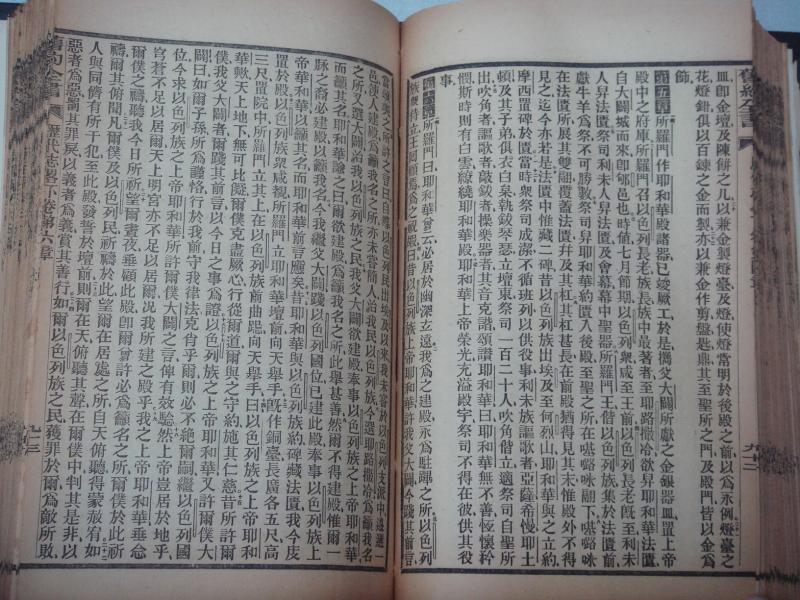 皿、卽金壇及陳餅之几、以兼金製燈臺及燈、使燈常明於後殿之前、以爲永例、燈臺之
花、燈鉗、俱以百鍊之金而製、亦以兼金作剪盤匙鼎、其至聖所之門、及殿門、皆以金爲
飾
第五章 所羅門作耶和華殿諸器、已竣厥工、於是攜父大闢所獻之金銀器皿、置上帝
殿中之府庫、所羅門召以色列長老、族長、族中最著者、至耶路撒冷、欲舁耶和華法匱、
自大闢城而來、卽郇邑也、時値七月節期、以色列衆咸至王前、以色列長老旣至、利未
人舁法匱、祭司利未人舁法匱、及會幕、幕中聖器、所羅門王偕以色列族、集於法匱前、
獻牛羊爲祭、不可勝數、祭司舁耶和華約匱、入後殿至聖之所、在𠼻㗲咻翮下、𠼻㗲咻
在法匱所、展其雙翮、覆蓋法匱、幷及其杠、其杠甚長、在前殿猶得見其末、惟殿外不得
見之、迄今亦若是、法匱中惟藏二碑、昔以色列族出埃及、至何烈山、耶和華與之立約、
摩西置碑於匱、當時衆祭司成潔、不循班列、以供役事、利未族謳歌者、亞薩、希慢、耶土
頓、及其子弟、俱衣白枲、執鈸琴瑟、立壇東、祭司一百二十人、吹角偕立、適祭司自聖所
出、吹角者、謳歌者、敲鈸者、操樂器者、其音克諧、頌讚耶和華、曰、耶和華無不善、恆懷矜
憫、斯時則有白雲繚繞耶和華殿、耶和華上帝榮光充溢殿宇、祭司不得在彼、供其役
事
第六章 所羅門曰、耶和華曾云、必居於幽深玄遠、我爲之建殿、永爲駐蹕之所、以色列
族衆侍立、王回顧、爲之祝嘏、曰、昔以色列族之上帝耶和華、許我父大闢、今踐其前言、
當頌美之、
邑、使人建殿、爲籲我名之所、亦未嘗簡人治我民以色列族、今選耶路撒冷爲籲我名
之所、又選大闢治我以色列族之民、我父大闢欲建殿、奉事以色列族之上帝耶和華、
而籲其名、耶和華諭之曰、爾欲建殿爲籲我名之所、此擧甚善、然爾不得建殿、惟爾
脉之裔、必建殿籲我名、今我繼父大闢、踐以色列國位、已建此殿、奉事以色列族上
帝耶和華、以籲其名、而耶和華前言應矣、昔耶和華與以色列族約、碑藏法匱、我今庋
置於殿、以色列族衆咸覩所羅門立耶和華壇前、向天擧手、旣作銅臺、長廣各五尺、高
三尺、置院中、所羅門立其上、在以色列族前曲跽、向天擧手、曰、以色列族之上帝耶和
華歟、天上地下、無可比儗、爾僕克盡厥心、行從爾道、爾與之守約施其仁慈、昔所許爾
僕我父大闢者、爾踐其前言、以今日之事爲證、以色列族之上帝耶和華、又許爾僕大
闢曰、如爾子孫所爲謹恪、行於我前、守我律法、克肖乎爾、則必不絕爾嗣、繼以色列國
位、今求以色列族之上帝耶和華、所許爾僕大闢之言、俾有效驗、然上帝豈居於地乎、
穹蒼不足以居爾、天上明宮亦不足以居爾、况我所建之殿乎、我之上帝耶和華、垂念
爾僕之禱、聽我今日所祈、望爾晝夜垂顧此殿、卽爾曾許必爲籲名之所、爾僕於此祈
禱、爾其俯聞凡爾僕及以色列民祈禱於此、望爾在居處之所、自天俯聽、得蒙赦宥、如
人與同儕有所干犯、至此殿、發誓於壇前、則爾在天俯聽其聲、在爾僕中判其是非、以
惡者爲惡、罰其罪戾、以義者爲義、賞其善行、如爾以色列族之民、獲罪於爾、爲敵所敗、
舊約全書 歷代志畧下卷第六章 九十三